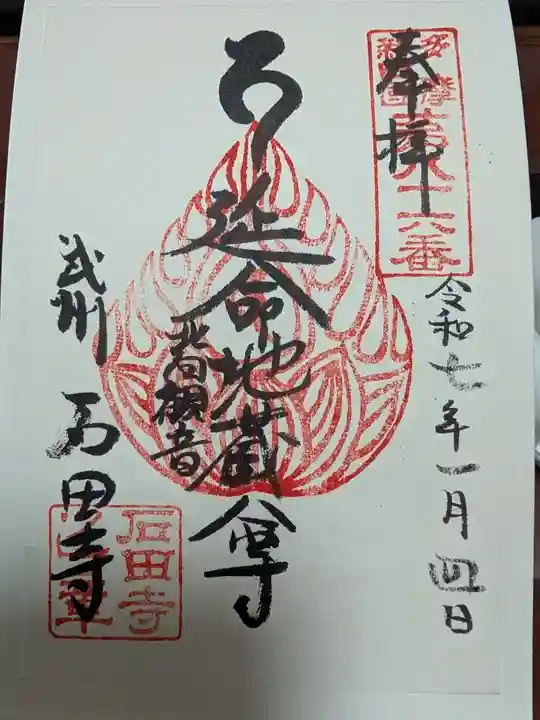 奉拝
多摩
十六番
令和七年一月四日
延命地蔵尊
観音
武州 石田寺
石田寺